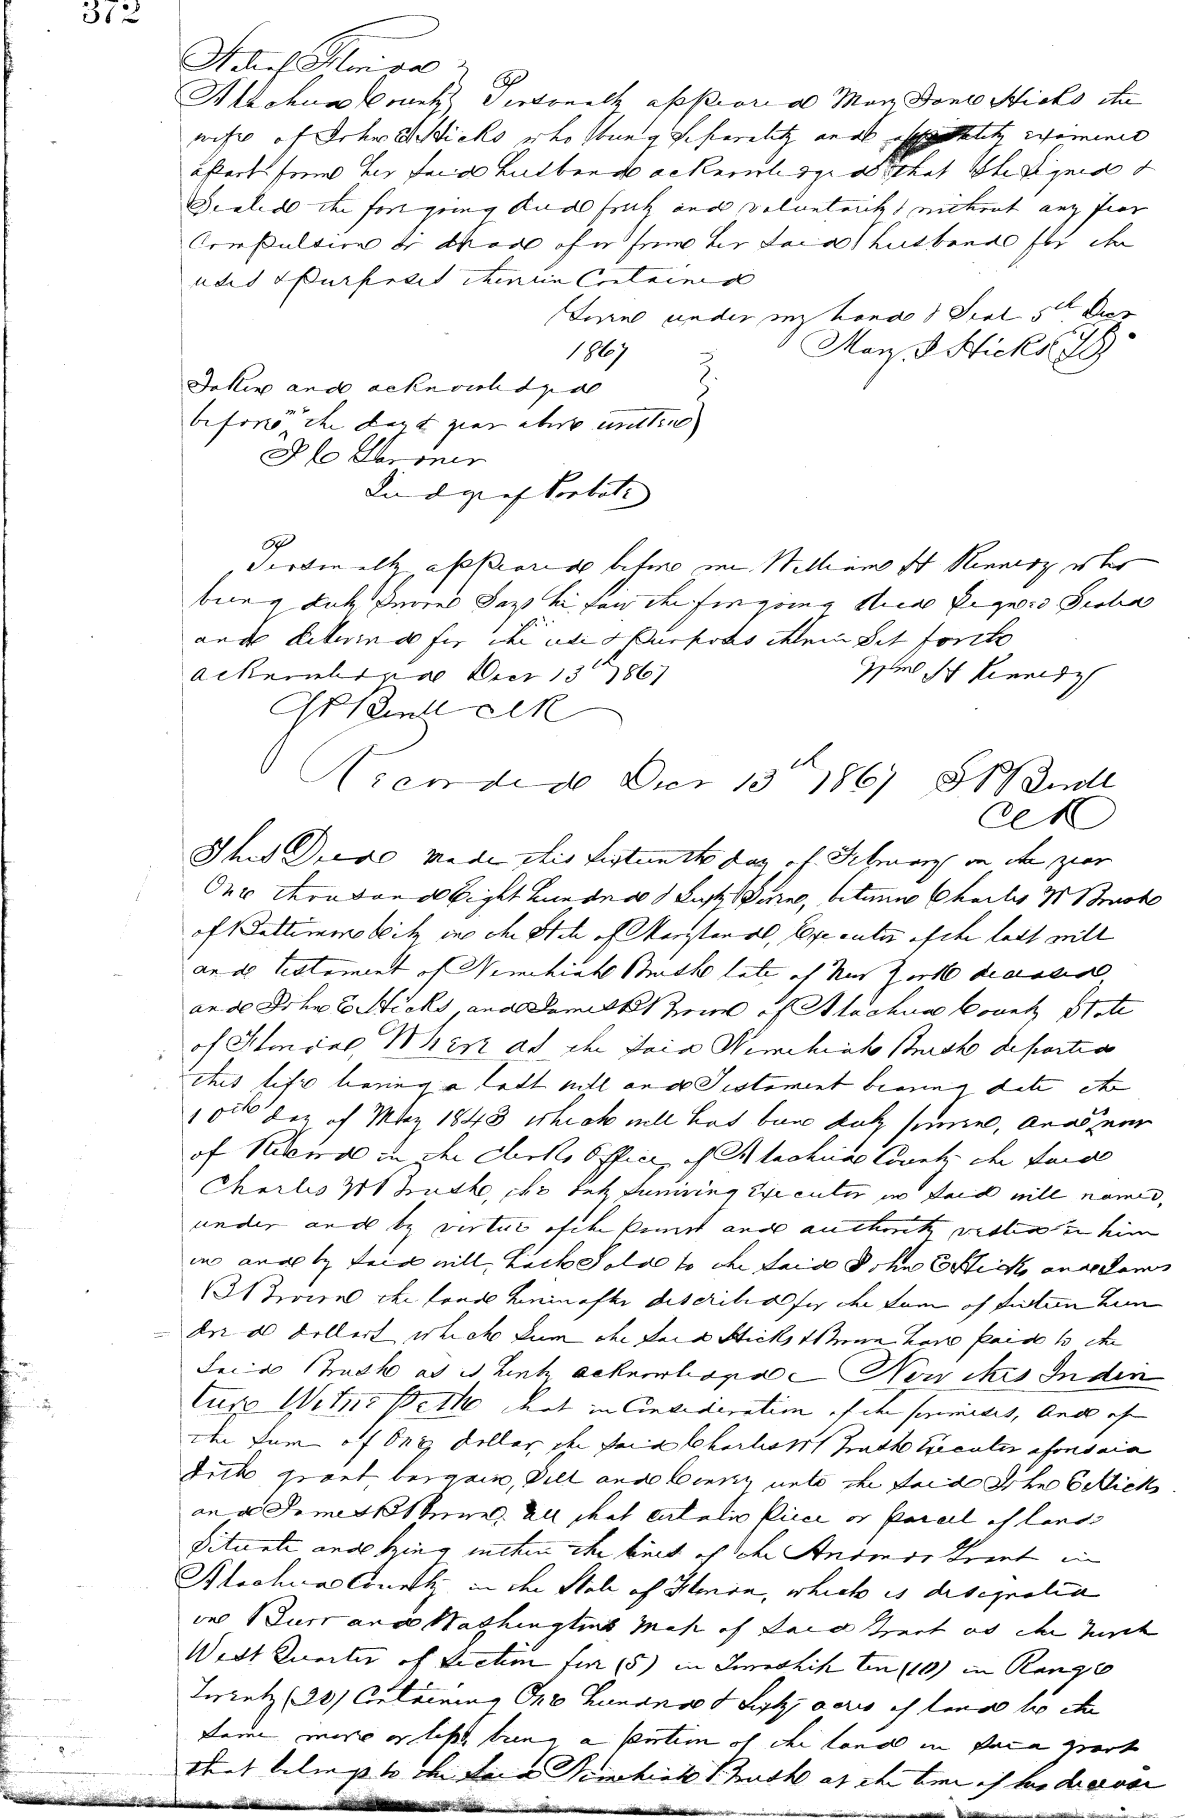 372
State of Florida
Alachua County Personally appeared Mary Jane Hicks the
wife of John E Hicks who being separately and examined
apart from her said husband acknowledged that she signed &
Sealed the foregoing deed freely and voluntarily without any fear
Compulsion or dread of or from her said husband for the
uses & Purposes therein Contained
Given under my hand & Seal 5th Decr
1867 Mary J Hicks
Taken and acknowledged
before me the day & year above written
J C Gardner
Judge of Probate
Personally appeared before me William H Kennedy who
being duly Sworn Says he saw the foregoing deed signed Sealed
and delivered for the use & Purposes therein Set forth
acknowledged Decr 13th 1867 Wm H Kennedy
Clk
Recorded Decr 13th 1867
Clk
This Deed made this Sixteenth day of February in the year
One thousand Eight hundred & Sixty Seven, between Charles W Brush
of Baltimore City in the State of Maryland, Executor of the last will
and testament of Nemehiah Brush late of New York deceased,
and John E Hicks, and James B Brown of Alachua County State
of Florida, Where as the said Nemehiah Brush departed
this life leaving a last will and Testament bearing date the
10th day of May 1843 which will has been duly proven, and is now
of Record in the Clerks Office, of Alachua County the said
Charles W Brush, the only Surviving Executor in said will named,
under and by virtue of the power and authority vested in him
in and by said will, hath Sold to the said John E Hicks and James
B Brown the land hereinafter described for the sum of sixteen hun
dred dollars which sum the said Hicks & Brown have paid to the
said Brush as is hereby acknowledged Now this Inden
ture Witnesseth that in Consideration of the premises, and of
the sum of One dollar, the said Charles W Brush Executor aforesaid
doth grant, bargain, sell and convey unto the said John E Hicks
and James B Brown, all that certain Piece or parcel of land
Situate and lying within the lines of the Arredondo Grant in
Alachua County in the State of Florida, which is designated
in Burr and Washingtons map of said Grant as the North
West Quarter of Section five (5) in Township ten (10) in Range
Twenty (20) Containing One hundred & Sixty acres of land be the
same more or less, being a portion of the land in said grant
that belongs to the said Nemehiah Brush at the time of his decease